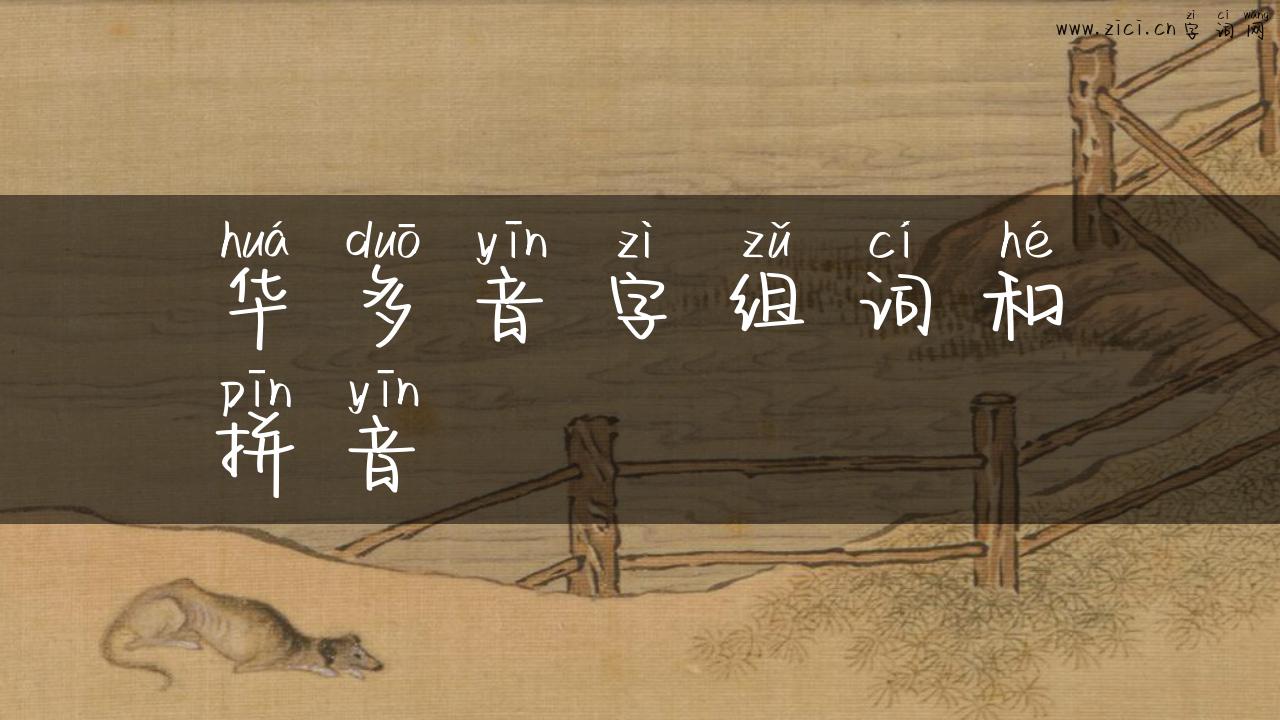 zì cí wǎng
www.zici.cn 字词网
huá duō yīn zì zǔ cí hé
华多音字组词和
pīn yīn
拼音